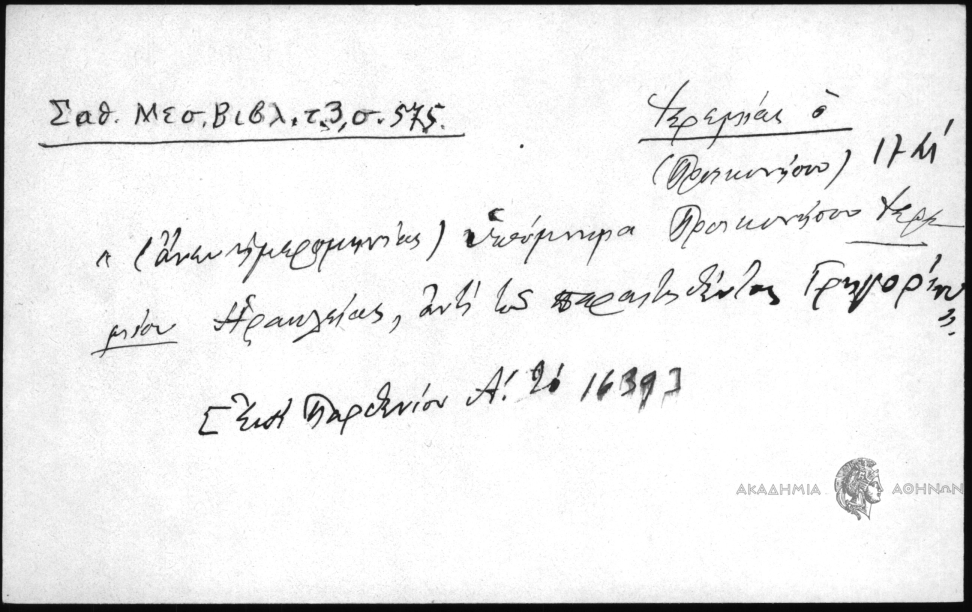 Σαθ. Μεσ. Βιβλ. τ. 3, σ. 575.
Ἱερεμίας ὁ
(Προικονήσου) 17
« (ἄνευ ἡμερομηνίας) ὑπόμνημα Προικονήσου Ἱερε-
μίου Ἡρακλείας, ἀντὶ τοῦ παραιτηθέντος Γρηγορίου
».
[Ἐπὶ Παρθενίου Α΄. τῷ 1639]
ΑΚΑΔΗΜΙΑ ΑΘΗΝΩΝ